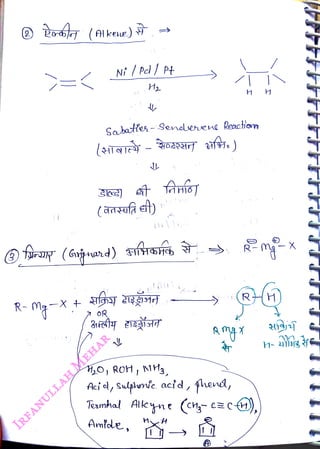 ② ऐल्कीन (Alkene) से ⇒
Ni / Pd / Pt
H₂
H H
Sabatier-Senderens Reaction
(साबात्ये - सेण्डरसन अभि॰)
डाल्डा का निर्माण
(वनस्पति घी)
③ ग्रिन्यार (Grignard) अभिकर्मक से ⇒ R-Mg-X
R-Mg-X + सक्रिय हाइड्रोजन → R-H
OR
अम्लीय हाइड्रोजन
RMgX से
सक्रिय H- यौगिक से
H₂O, ROH, NH₃,
Acid, Sulphonic acid, phenol,
Terminal Alkyne (CH₃-C≡C-H),
Amide, H H →
IRFANULLAH MEHAR